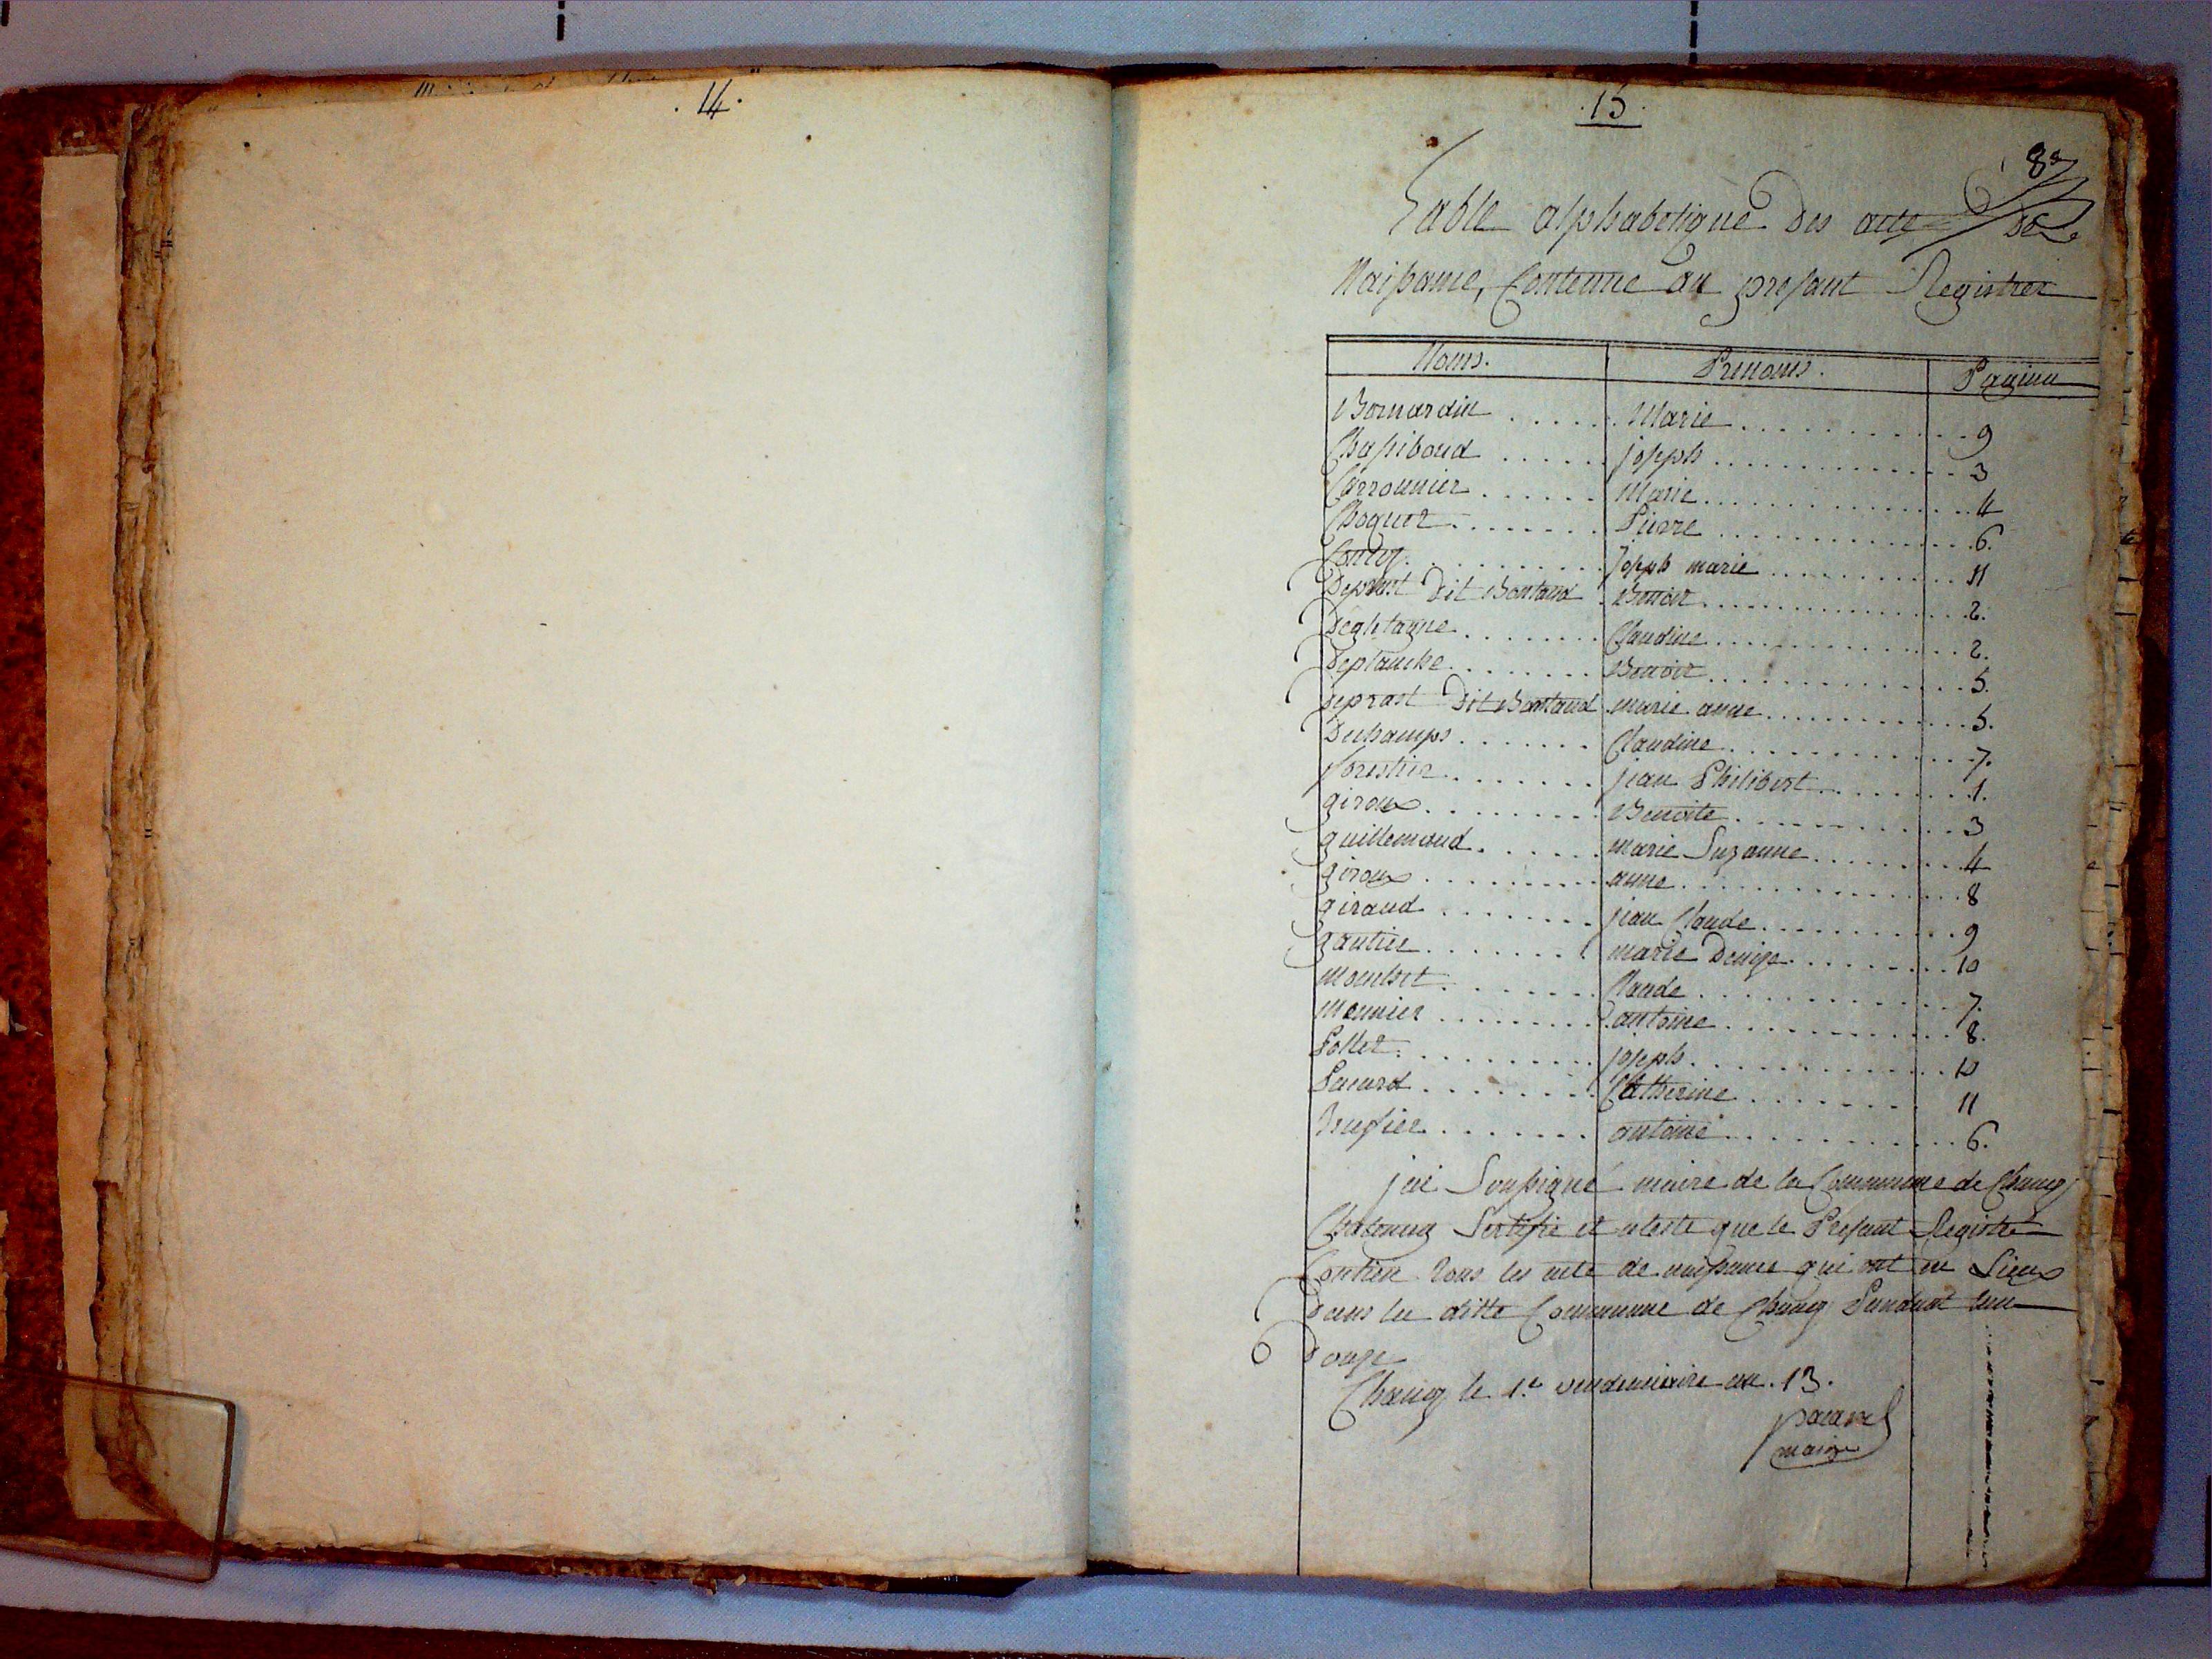 .14.
.15.
8e
Table alphabetique Des acte De
Naissance, Contenue au presant Registrer
Noms. Prenoms. Pagina
Bornardin Marie 9
Chassiboud joseph 3
Carronnier Marie 4
Choquet Pierre 6.
Conty joseph marie 11
Deprast Dit Bontaud Benoit 2.
Claudine 2.
Deplanche Benoit 5.
Deprast Dit Bontaud marie anne 5.
Duchamps Claudine 7.
forestier jean Philibert 1.
giroux Benoite 3
guillemaud marie Suzanne 4
giroux anne 8
giraud jean Claude 9
gautier marie Denise 10
Claude 7.
Monnier antoine 8.
Pollet joseph 10
Pacard Catherine 11
antoine 6.
jai Soussigné maire de la Commune de Chang
Sertifie et ateste que le Presant Registre
Contien tous les acte de naissance qui ont eu Lieux
Dans la ditte Commune de Chang Pandant lan
Douze
Chang le 1.er vendemiaire an .13.
pacard
maire